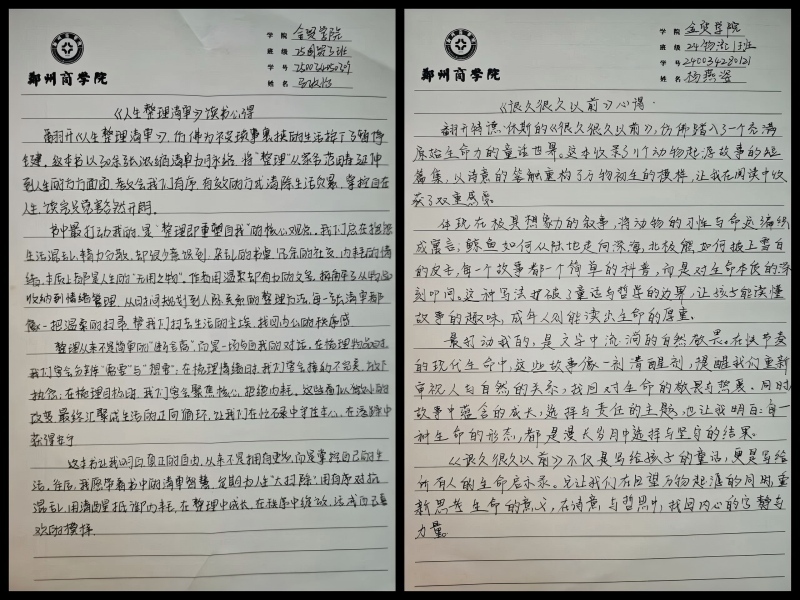 郑州商学院
学院 金贸学院
班级
学号
姓名
《人生整理清单》读书心得
翻开《人生整理清单》，仿佛为
这本书以
书中最打动我的，是"整理即重塑自我"的核心观念，我们总在抱怨
生活混乱、精力分散，却很少意识到，杂乱的书桌、冗余的社交、内耗的情
绪，本质上都是人生的"无用之物"。作者用温柔却有力的文字，指南
收纳到情绪管理，从时间规划到人际关系的整理方法，每一张清单都
像一把温柔的扫帚，帮我们扫去生活的尘埃，找回内心的秩序感。
整理从来不是简单的"断舍离"，而是一场与自我的对话，在整理物品时，
我们学会分辨"需要"与"想要"；在整理情绪时，我们学会接纳不完美，放下
执念；在整理目标时，我们学会聚焦核心，拒绝内耗。这些看似微小的
改变，最终汇聚成生活的正向循环，让我们在忙碌中守住本心，在
获得安宁
这本书让我明白真正的自由，从来不是拥有更多，而是掌控自己的生
活。往后，我愿带着书中的清单智慧，定期为人生"大扫除"，用有序对抗
混乱，用清醒抵御内耗，在整理中成长，在秩序中绽放，活成自己喜
欢的模样.
郑州商学院
学院 金贸学院
班级 24物流1班
学号 240034280121
姓名 杨燕
《很久很久以前》心得.
翻开特德·休斯的《很久很久以前》，仿佛踏入了一个充满
原始生命力的童话世界。这本收录了11个动物起源故事的短
篇集，以诗意的笔触重构了万物初生的模样，让我在阅读中收
获了双重感受。
体现在极具想象力的叙事，将动物的习性与命运编织
成寓言；鲸鱼如何从陆地走向深海，北极熊如何披上雪白
的皮毛，每一个故事都一个简单的科普，而是对生命本质的深
刻叩问。这种写法打破了童话与哲学的边界，让孩子能读懂
故事的趣味，成年人则能读出生命的厚重。
最打动我的，是文字中流淌的自然敬畏。在快节奏
的现代生命中，这些故事像一剂清醒剂，提醒我们重新
审视人与自然的关系，找回对生命的敬畏与热爱。同时
故事中蕴含的成长，选择与责任的主题，也让我明白：每一
种生命的形态，都是漫长岁月中选择与坚守的结果。
《很久很久以前》不仅是写给孩子的童话，更是写给
所有人的生命启示录。它让我们在回望万物起源的同时，重
新思考生命的意义，在诗意与哲思中，找回内心的宁静与
力量.